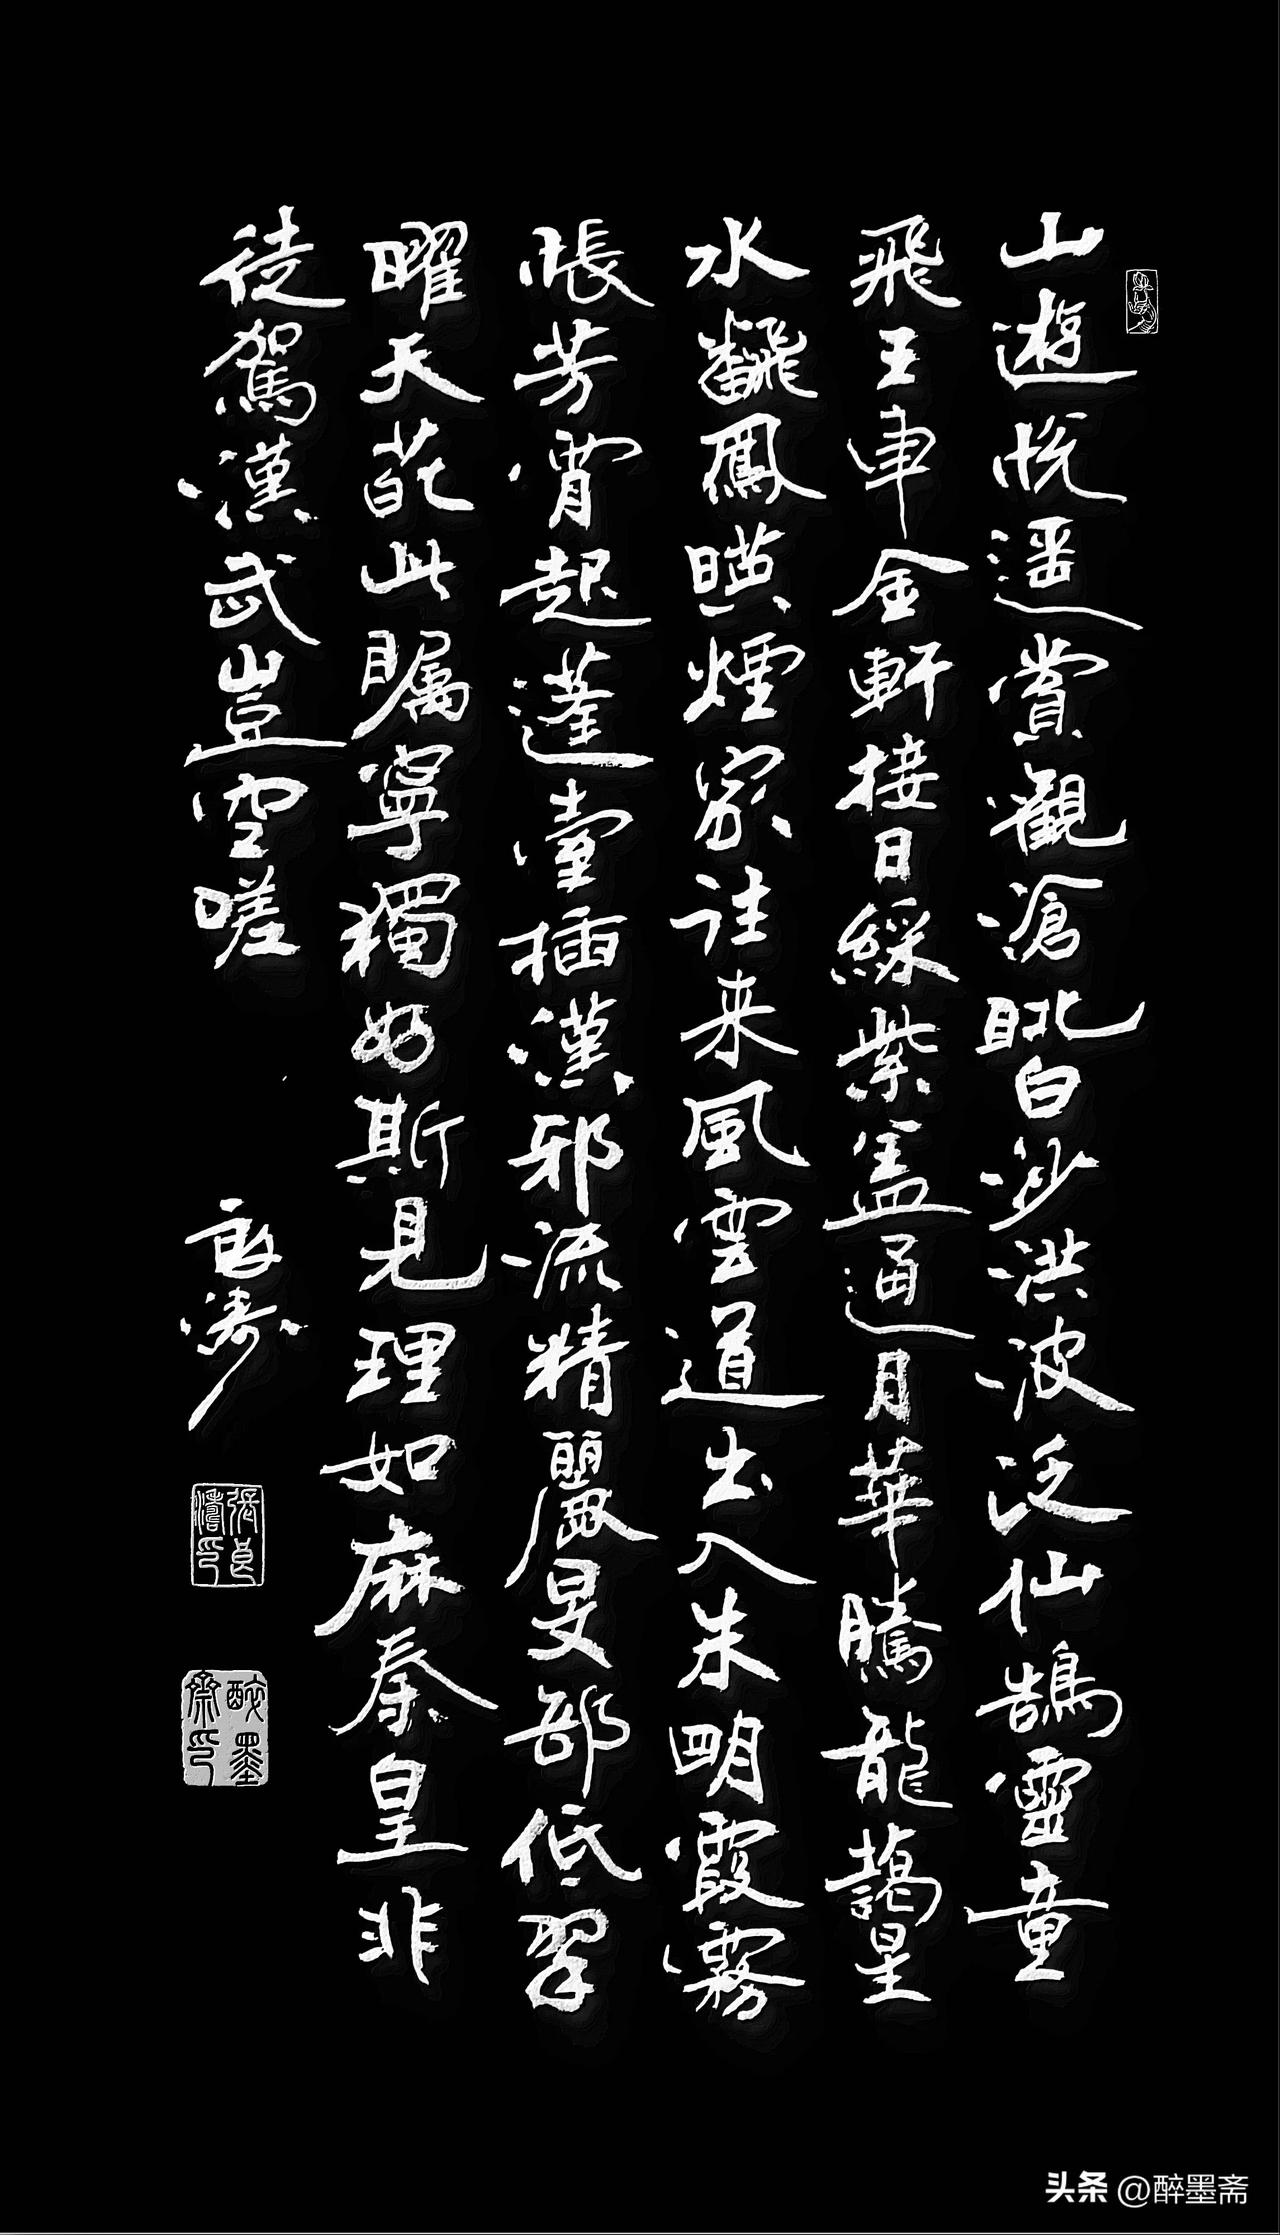 山遊悦遥賞觀滄眺白沙洪波泛仙鵠靈童
飛玉車金軒接日綵紫盖通月華騰龍藹星
水飜鳳暎煙家往来風雲道出入朱明霞霧
帳芳宵起蓬臺插漢邪流精麗旻部低翠
曜天葩此矚寧獨好斯見理如麻秦皇非
徒駕漢武豈空嗟
良濤
張良濤印
醉墨齋印
头条 @醉墨斋